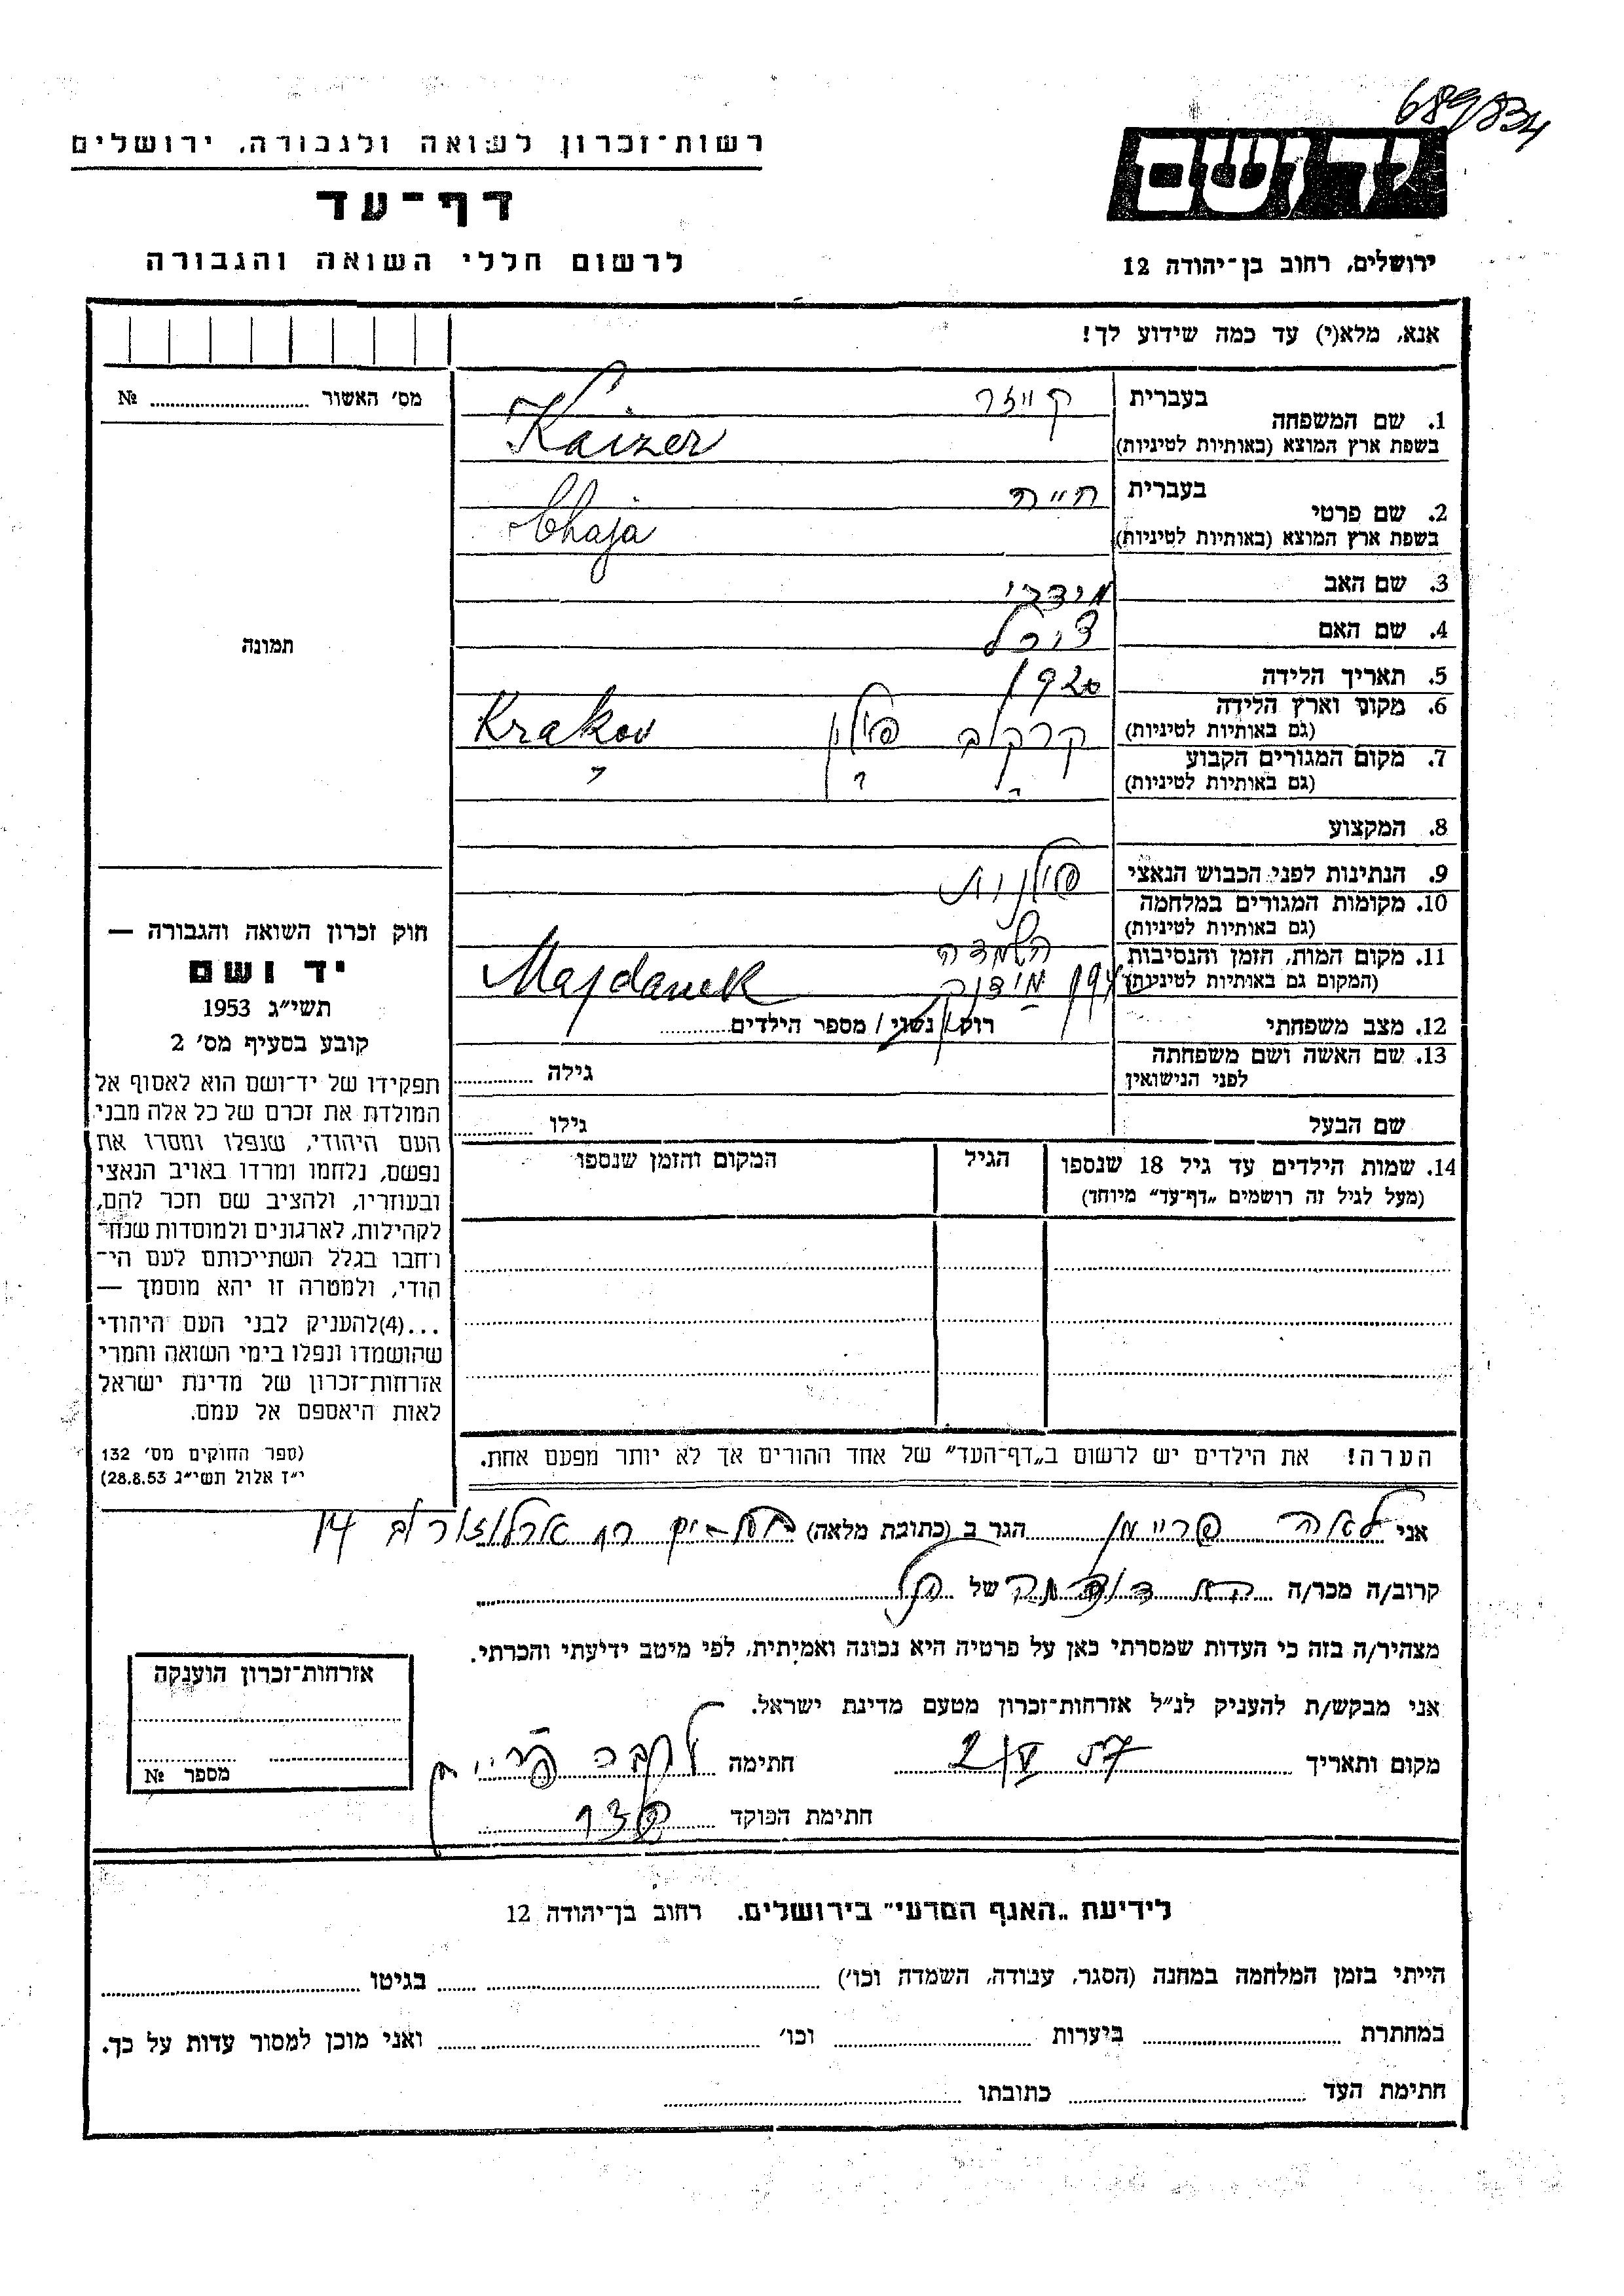 689834
רשות־זכרון לשואה ולגבורה, ירושלים
יד ושם
דף־עד
לרשום חללי השואה והגבורה
ירושלים, רחוב בן־יהודה 12
אנא, מלא(י) עד כמה שידוע לך!
מס׳ האשור № 
1. שם המשפחה
בעברית קייזר
בשפת ארץ המוצא (באותיות לטיניות) Kaizer
2. שם פרטי
בעברית חייה
בשפת ארץ המוצא (באותיות לטיניות) Chaja
3. שם האב
4. שם האם
5. תאריך הלידה 1920
6. מקום וארץ הלידה
(גם באותיות לטיניות) קרקוב פולין Krakov
7. מקום המגורים הקבוע
(גם באותיות לטיניות)
8. המקצוע
9. הנתינות לפני הכבוש הנאצי פולנית
10. מקומות המגורים במלחמה
(גם באותיות לטיניות)
11. מקום המות, הזמן והנסיבות השמדה
(המקום גם באותיות לטיניות) מידנק Majdanek
12. מצב משפחתי רוק/ נשוי/ מספר הילדים
13. שם האשה ושם משפחתה
לפני הנישואין גילה
שם הבעל גילו
14. שמות הילדים עד גיל 18 שנספו הגיל המקום והזמן שנספו
(מעל לגיל זה רושמים „דף־עד״ מיוחד)
הערה! את הילדים יש לרשום ב„דף־העד״ של אחד ההורים אך לא יותר מפעם אחת.
תמונה
חוק זכרון השואה והגבורה —
יד ושם
תשי״ג 1953
קובע בסעיף מס׳ 2
תפקידו של יד־ושם הוא לאסוף אל
המולדת את זכרם של כל אלה מבני
העם היהודי, שנפלו ומסרו את
נפשם, נלחמו ומרדו באויב הנאצי
ובעוזריו, ולהציב שם וזכר להם,
לקהילות, לארגונים ולמוסדות שנח־
רחבו בגלל השתייכותם לעם הי־
הודי, ולמטרה זו יהא מוסמך —
...(4)להעניק לבני העם היהודי
שהושמדו ונפלו בימי השואה והמרי
אזרחות־זכרון של מדינת ישראל
לאות היאספם אל עמם.
(ספר החוקים מס׳ 132
י״ז אלול תשי״ג 28.8.53)
אני לאה פריימן הגר ב (כתובת מלאה) רח ארלוזורוב 14
קרוב/ה מכר/ה של
מצהיר/ה בזה כי העדות שמסרתי כאן על פרטיה היא נכונה ואמיתית, לפי מיטב ידיעתי והכרתי.
אני מבקש/ת להעניק לנ״ל אזרחות־זכרון מטעם מדינת ישראל.
מקום ותאריך 2/V 57 חתימה
חתימת הפוקד
אזרחות־זכרון הוענקה
מספר №
לידיעת „האגף המדעי״ בירושלים. רחוב בן־יהודה 12
הייתי בזמן המלחמה במחנה (הסגר, עבודה, השמדה וכו׳) בגיטו
במחתרת ביערות וכו׳ ואני מוכן למסור עדות על כך.
חתימת העד כתובתו